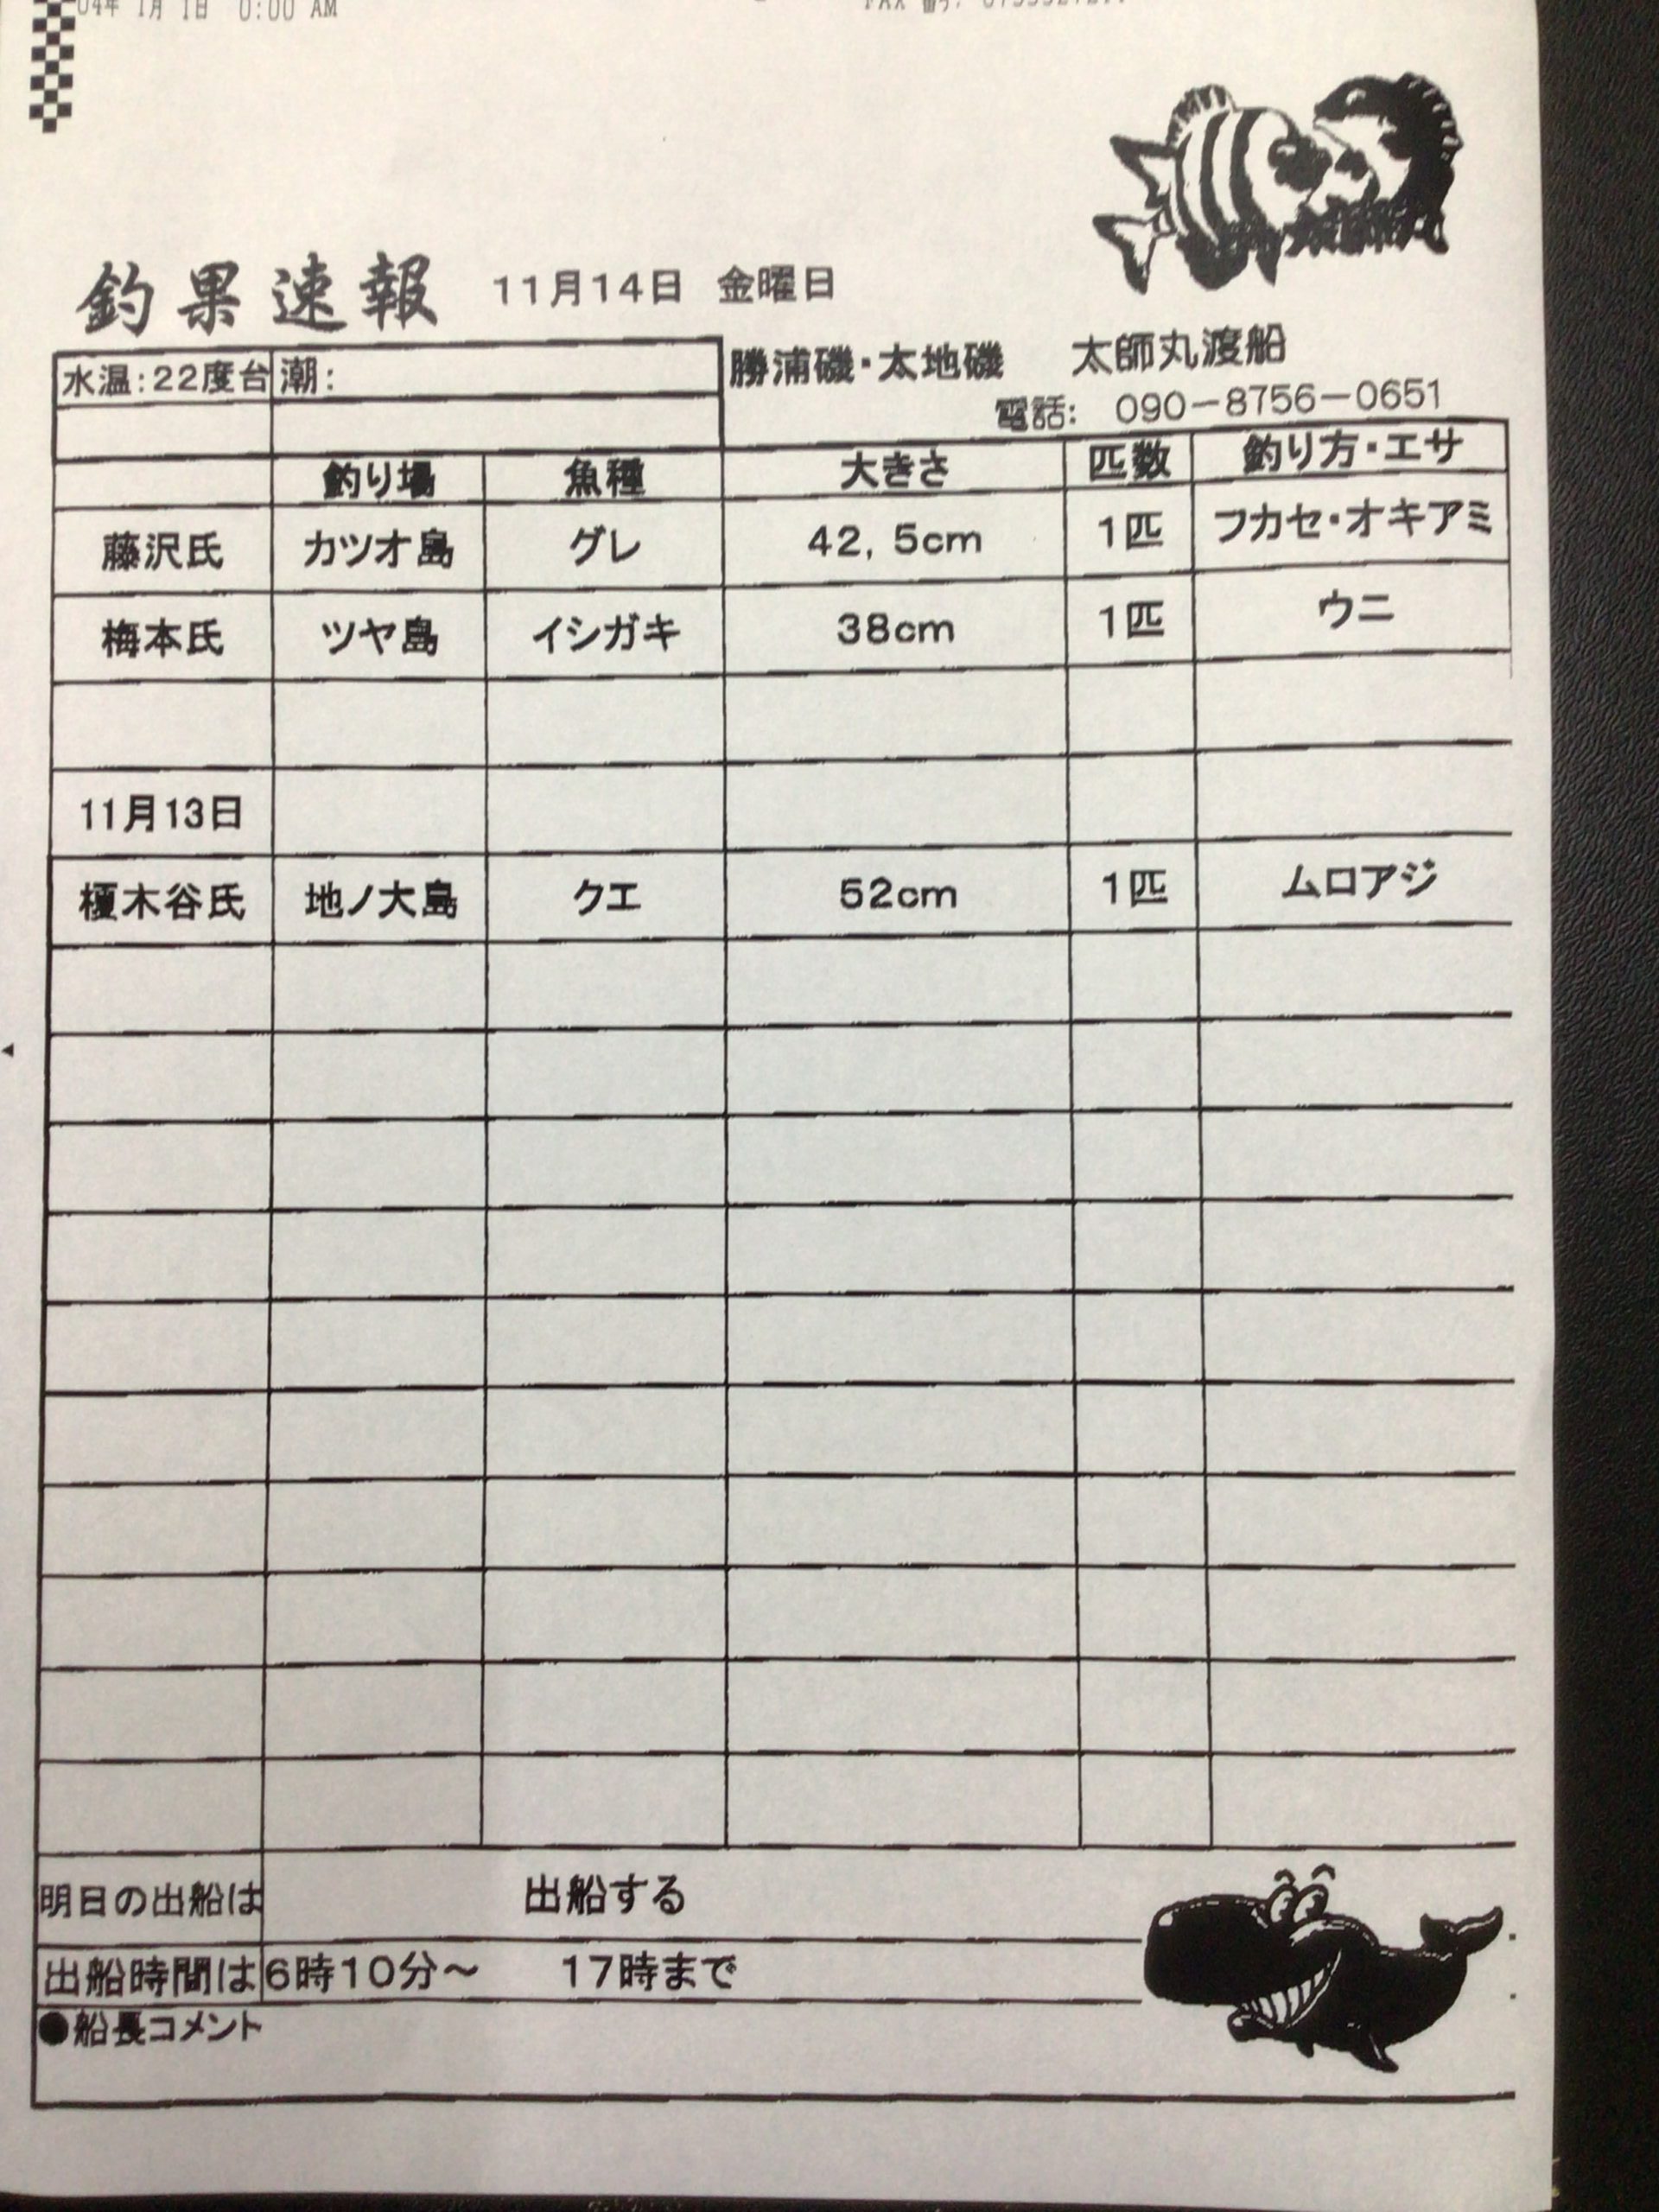 04年 1月 1日 0:00 AM
釣果速報 11月14日 金曜日
水温:22度台 潮: 勝浦磯・太地磯 太師丸渡船
電話: 090-8756-0651
釣り場 魚種 大きさ 匹数 釣り方・エサ
藤沢氏 カツオ島 グレ 42, 5cm 1匹 フカセ・オキアミ
梅本氏 ツヤ島 イシガキ 38cm 1匹 ウニ
11月13日
榎木谷氏 地ノ大島 クエ 52cm 1匹 ムロアジ
明日の出船は 出船する
出船時間は 6時10分～ 17時まで
●船長コメント